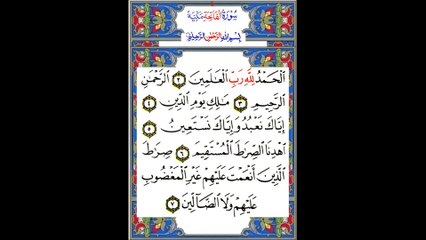 سورة الفاتحة مكية
بسم الله الرحمن الرحيم
الْحَمْدُ لِلَّهِ رَبِّ الْعَالَمِينَ ٢ الرَّحْمَٰنِ
الرَّحِيمِ ٣ مَالِكِ يَوْمِ الدِّينِ ٤
إِيَّاكَ نَعْبُدُ وَإِيَّاكَ نَسْتَعِينُ ٥
اهْدِنَا الصِّرَاطَ الْمُسْتَقِيمَ ٦ صِرَاطَ
الَّذِينَ أَنْعَمْتَ عَلَيْهِمْ غَيْرِ الْمَغْضُوبِ
عَلَيْهِمْ وَلَا الضَّالِّينَ ٧